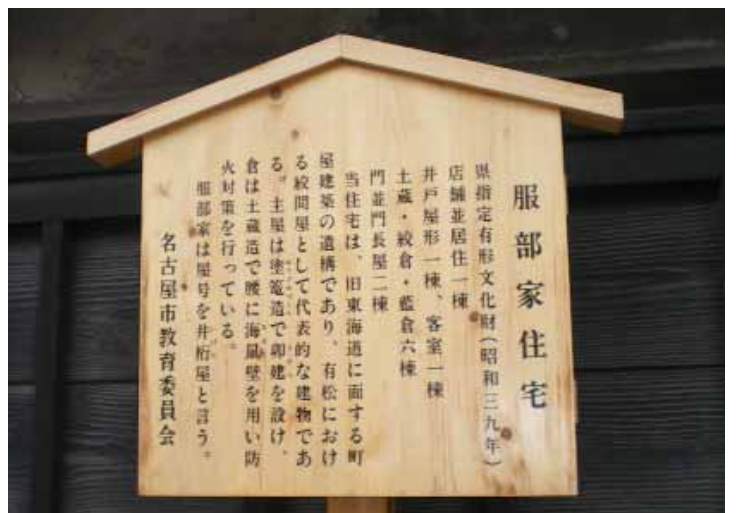 服部家住宅
県指定有形文化財(昭和三九年)
店舗並居住一棟
井戸屋形一棟、客室一棟
土蔵・絞倉・藍倉六棟
門並門長屋二棟
当住宅は、旧東海道に面する町
屋建築の遺構であり、有松におけ
る絞問屋として代表的な建物であ
る。主屋は塗篭造で卯建を設け、
倉は土蔵造で腰に海鼠壁を用い防
火対策を行っている。
服部家は屋号を井桁屋と言う。
名古屋市教育委員会